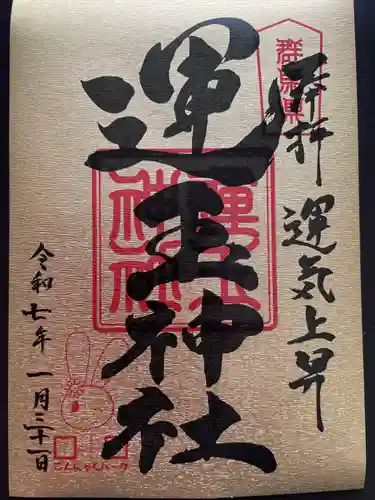 群馬県
奉拝
運気上昇
運玉神社
令和七年一月三十一日
こんにゃくパーク